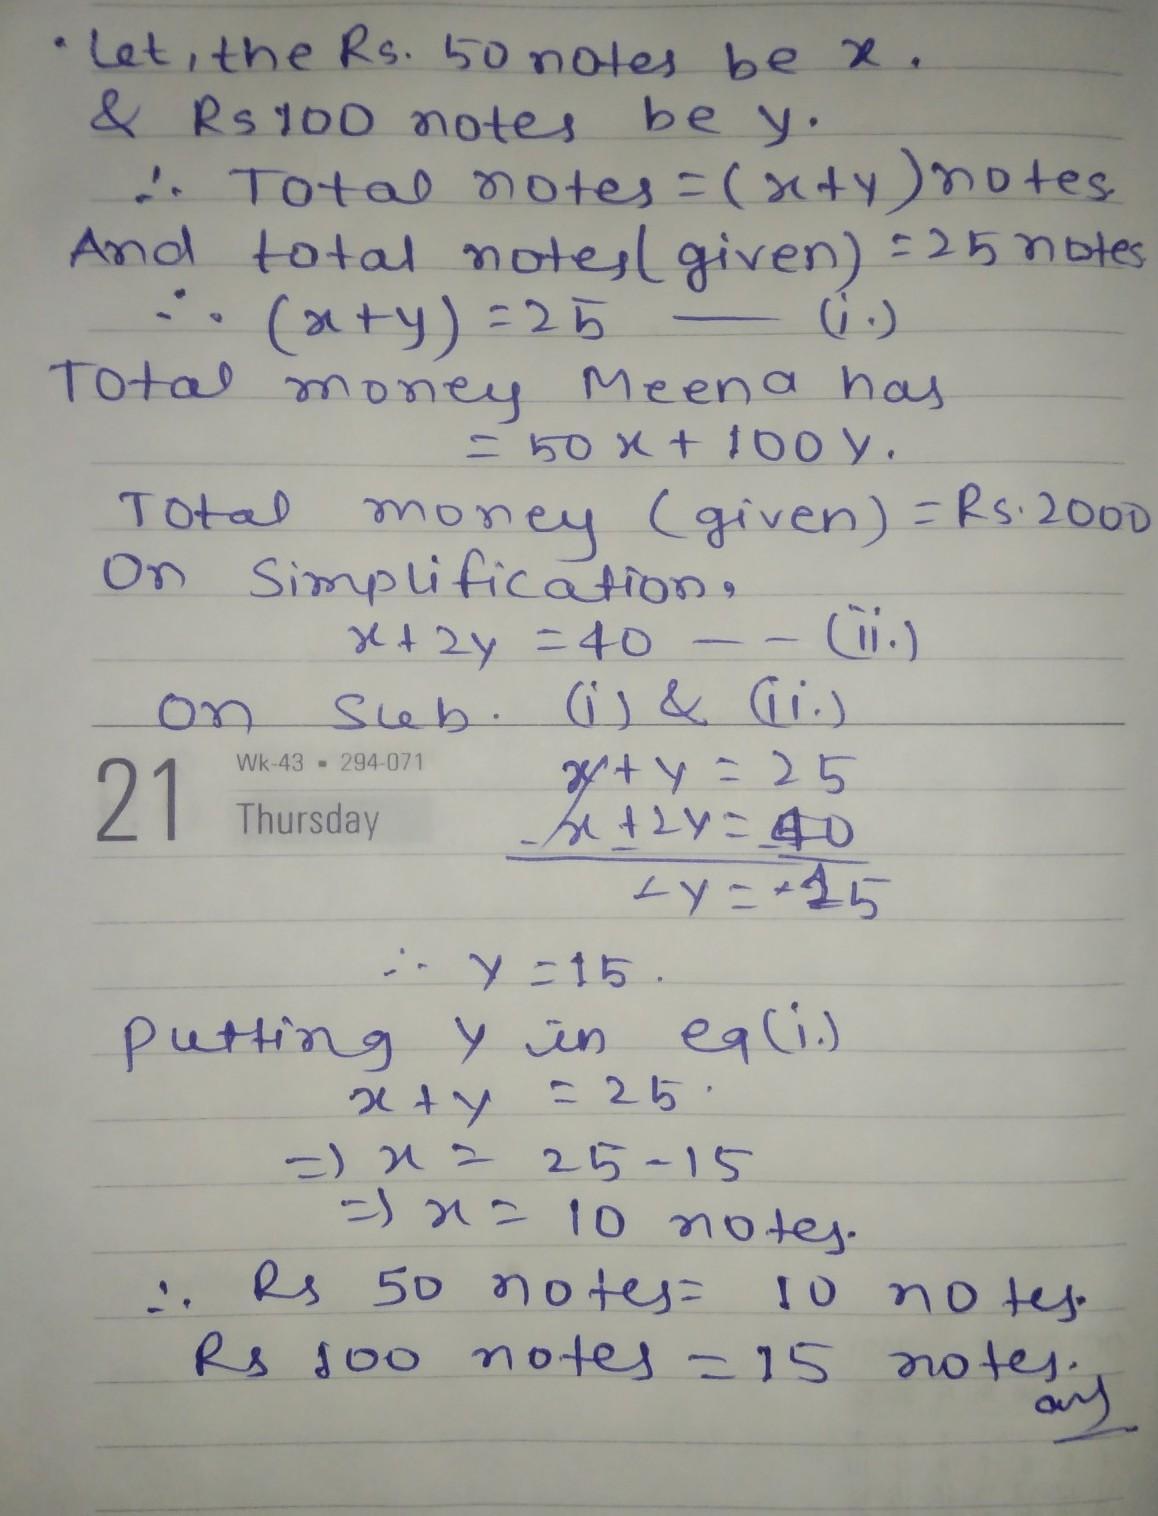 • Let, the Rs. 50 notes be x.
& Rs 100 notes be y.
∴ Total notes = (x+y) notes
And total notes (given) = 25 notes
∴ (x+y) = 25 — (i.)
Total money Meena has
= 50x + 100y.
Total money (given) = Rs. 2000
On Simplification,
x + 2y = 40 -- (ii.)
On Sub. (i) & (ii.)
21
Wk-43 • 294-071
Thursday
x + y = 25
- x + 2y = 40
- y = -15
∴ y = 15.
Putting y in eq (i.)
x + y = 25.
=> x = 25 - 15
=> x = 10 notes.
∴ Rs 50 notes = 10 notes.
Rs 100 notes = 15 notes.
ans